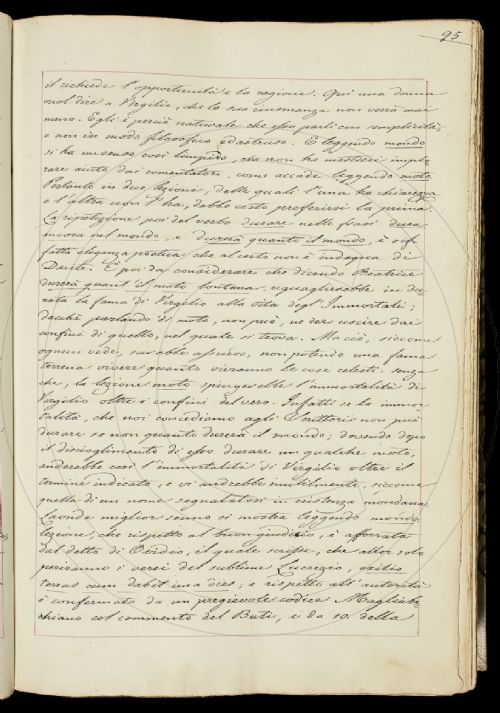 25
il richiede l'opportunità e la ragione. Qui una donna
vuol dire a Virgilio, che la sua rinomanza non verrà mai
meno. Egli è perciò naturale che essa parli con semplicità,
e non in modo filosofico ed astruso. E leggendo mondo
si ha un senso così limpido, che non ha mestieri implo
rare aiuto dai comentatori, come accade leggendo moto
Pertanto in due lezioni, delle quali l'una ha chiarezza
e l'altra non l'ha, debbe certo preferirsi la prima.
La ripetizione poi del verbo durare nelle frasi dura
ancora nel mondo, e durerà quanto il mondo, è sif
fatta eleganza poetica, che al certo non è indegna di
Dante. È poi da considerare che dicendo Beatrice
durerà quant' il moto lontana, uguaglierebbe in du
rata la fama di Virgilio alla vita degl' Immortali;
dacché parlando di moto, non può, nè dee uscire dai
confini di quello, nel quale si trova. Ma ciò, siccome
ognun vede, sarebbe assurdo, non potendo una fama
terrena vivere quanto vivranno le cose celesti. Senza
che, la lezione moto spingerebbe l'immortalità di
Virgilio oltre i confini del vero. Infatti se la immor
talità, che noi concediamo agli Scrittori non può
durare se non quanto durerà il mondo; dovendo dopo
il discioglimento di esso durare un qualche moto,
anderebbe così l'immortalità di Virgilio oltre il
termine indicato, e vi andrebbe inutilmente, siccome
quella di un nome segnalatosi in esistenza mondana.
Laonde miglior senno si mostra leggendo mondo
lezione, che rispetto al buon giudizio, è afforzata
dal detto di Ovidio, il quale scrisse, che allor solo
periranno i versi del sublime Lucrezio, exitio
terras cum dabit una dies; e rispetto all' autorità
è confermata da un pregievole codice Magliabe
chiano col commento del Buti, e da 19. della